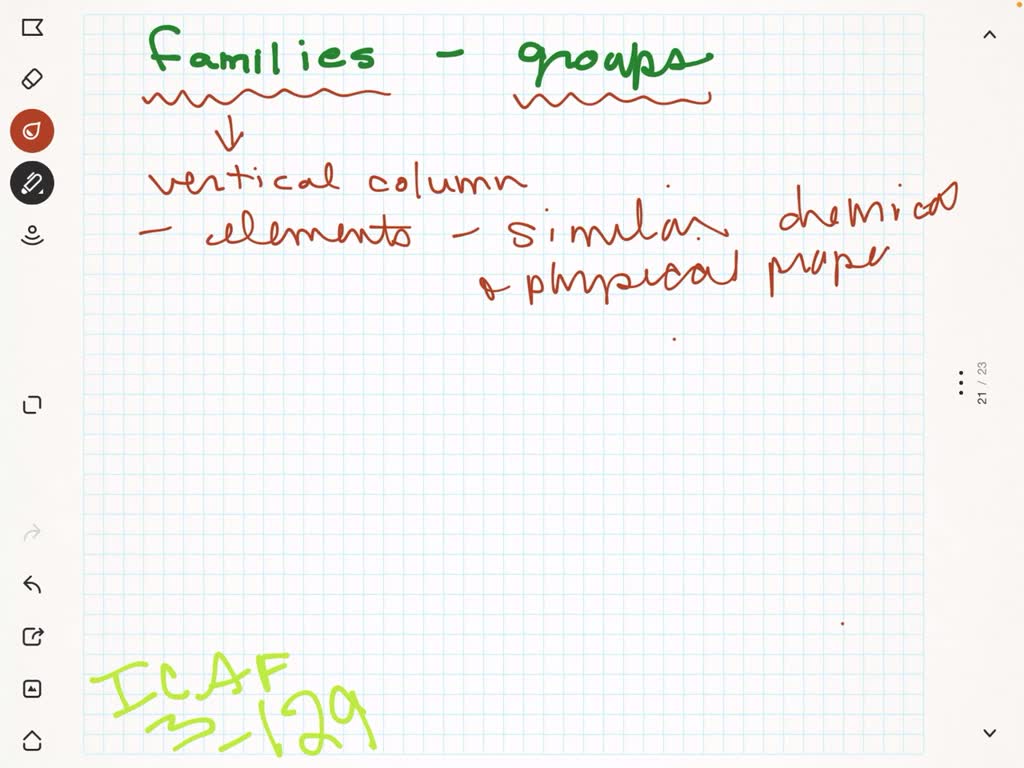 families - groups
vertical column
- elements - similar chemical
+ physical prope
21 / 23
ICAF
3-129